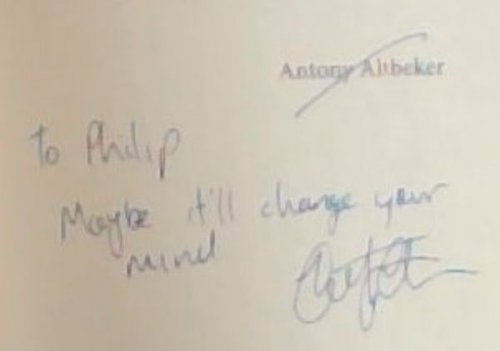 Antony Altbeker
To Philip
Maybe it'll change your
mind